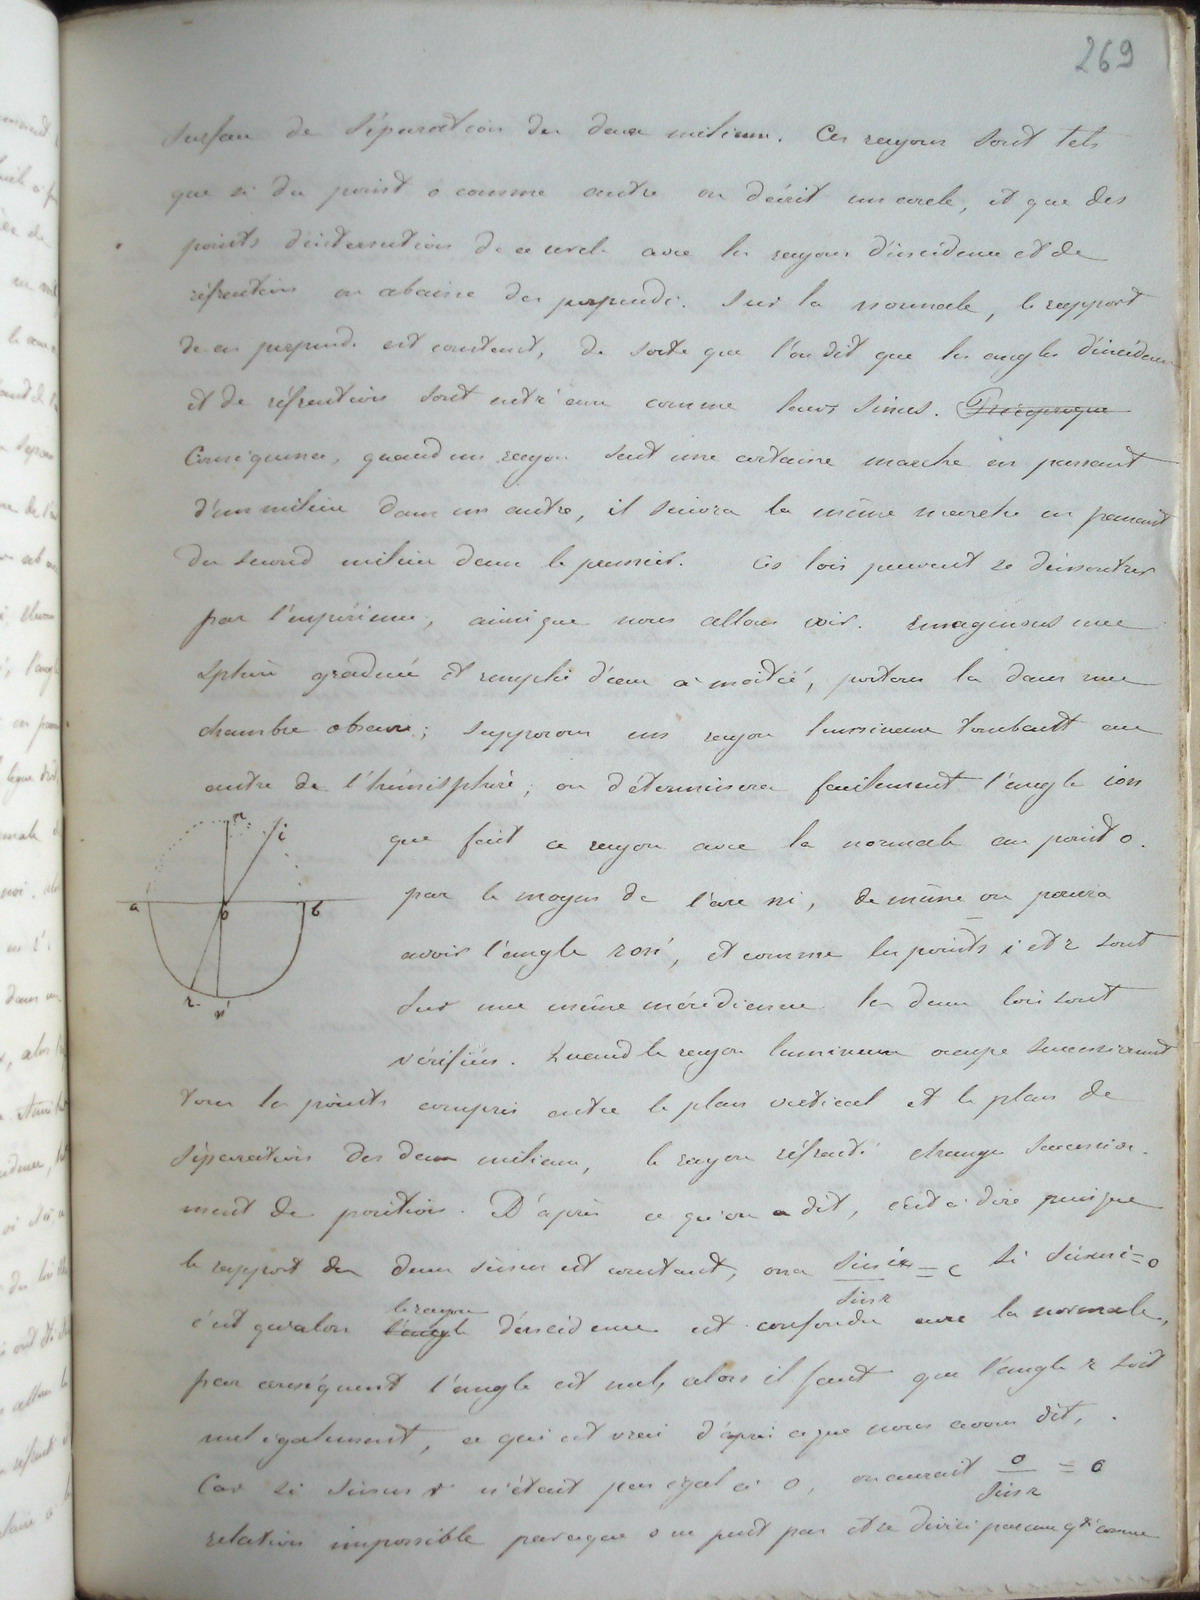 269
surface de séparation des deux milieux. Ces rayons sont tels
que si du point o comme centre on décrit un cercle, et que des
points d'intersection de ce cercle avec les rayons d'incidence et de
réfraction on abaisse des perpendi. sur la normale, le rapport
de ces perpend. est constant, de sorte que l'on dit que les angles d'incidence
et de réfraction sont entr'eux comme leurs sinus. Réciproque
Conséquence, quand un rayon suit une certaine marche en passant
d'un milieu dans un autre, il suivra la même marche en passant
du second milieu dans le premier. Ces lois peuvent se démontrer
par l'expérience, ainsi que nous allons voir. Imaginons une
sphère graduée et remplie d'eau à moitié, portons la dans une
chambre obscure; supposons un rayon lumineux tombant au
centre de l'hémisphère; on déterminera facilement l'angle ion
que fait ce rayon avec la normale au point o.
par le moyen de l'arc ni, de même on pourra
avoir l'angle ron', et comme les points i et r sont
sur une même méridienne les deux lois sont
vérifiées. Quand le rayon lumineux occupe successivement
tous les points compris entre le plan vertical et le plan de
séparation des deux milieux, le rayon réfracté change successive-
ment de position. D'après ce qu'on a dit, c'est à dire puisque
le rapport des deux sinus est constant, on a sin i / sin r = c si sinus i = o
c'est qu'alors l'angle le rayon d'incidence est confondu avec la normale,
par conséquent l'angle est nul, alors il faut que l'angle r soit
nul également, ce qui est vrai d'après ce que nous avons dit,
Car si sinus r n'était pas égal à o, on aurait o / sin r = o
relation impossible parceque o ne peut pas être divisé par une qté comme
n i
a o b
r n'